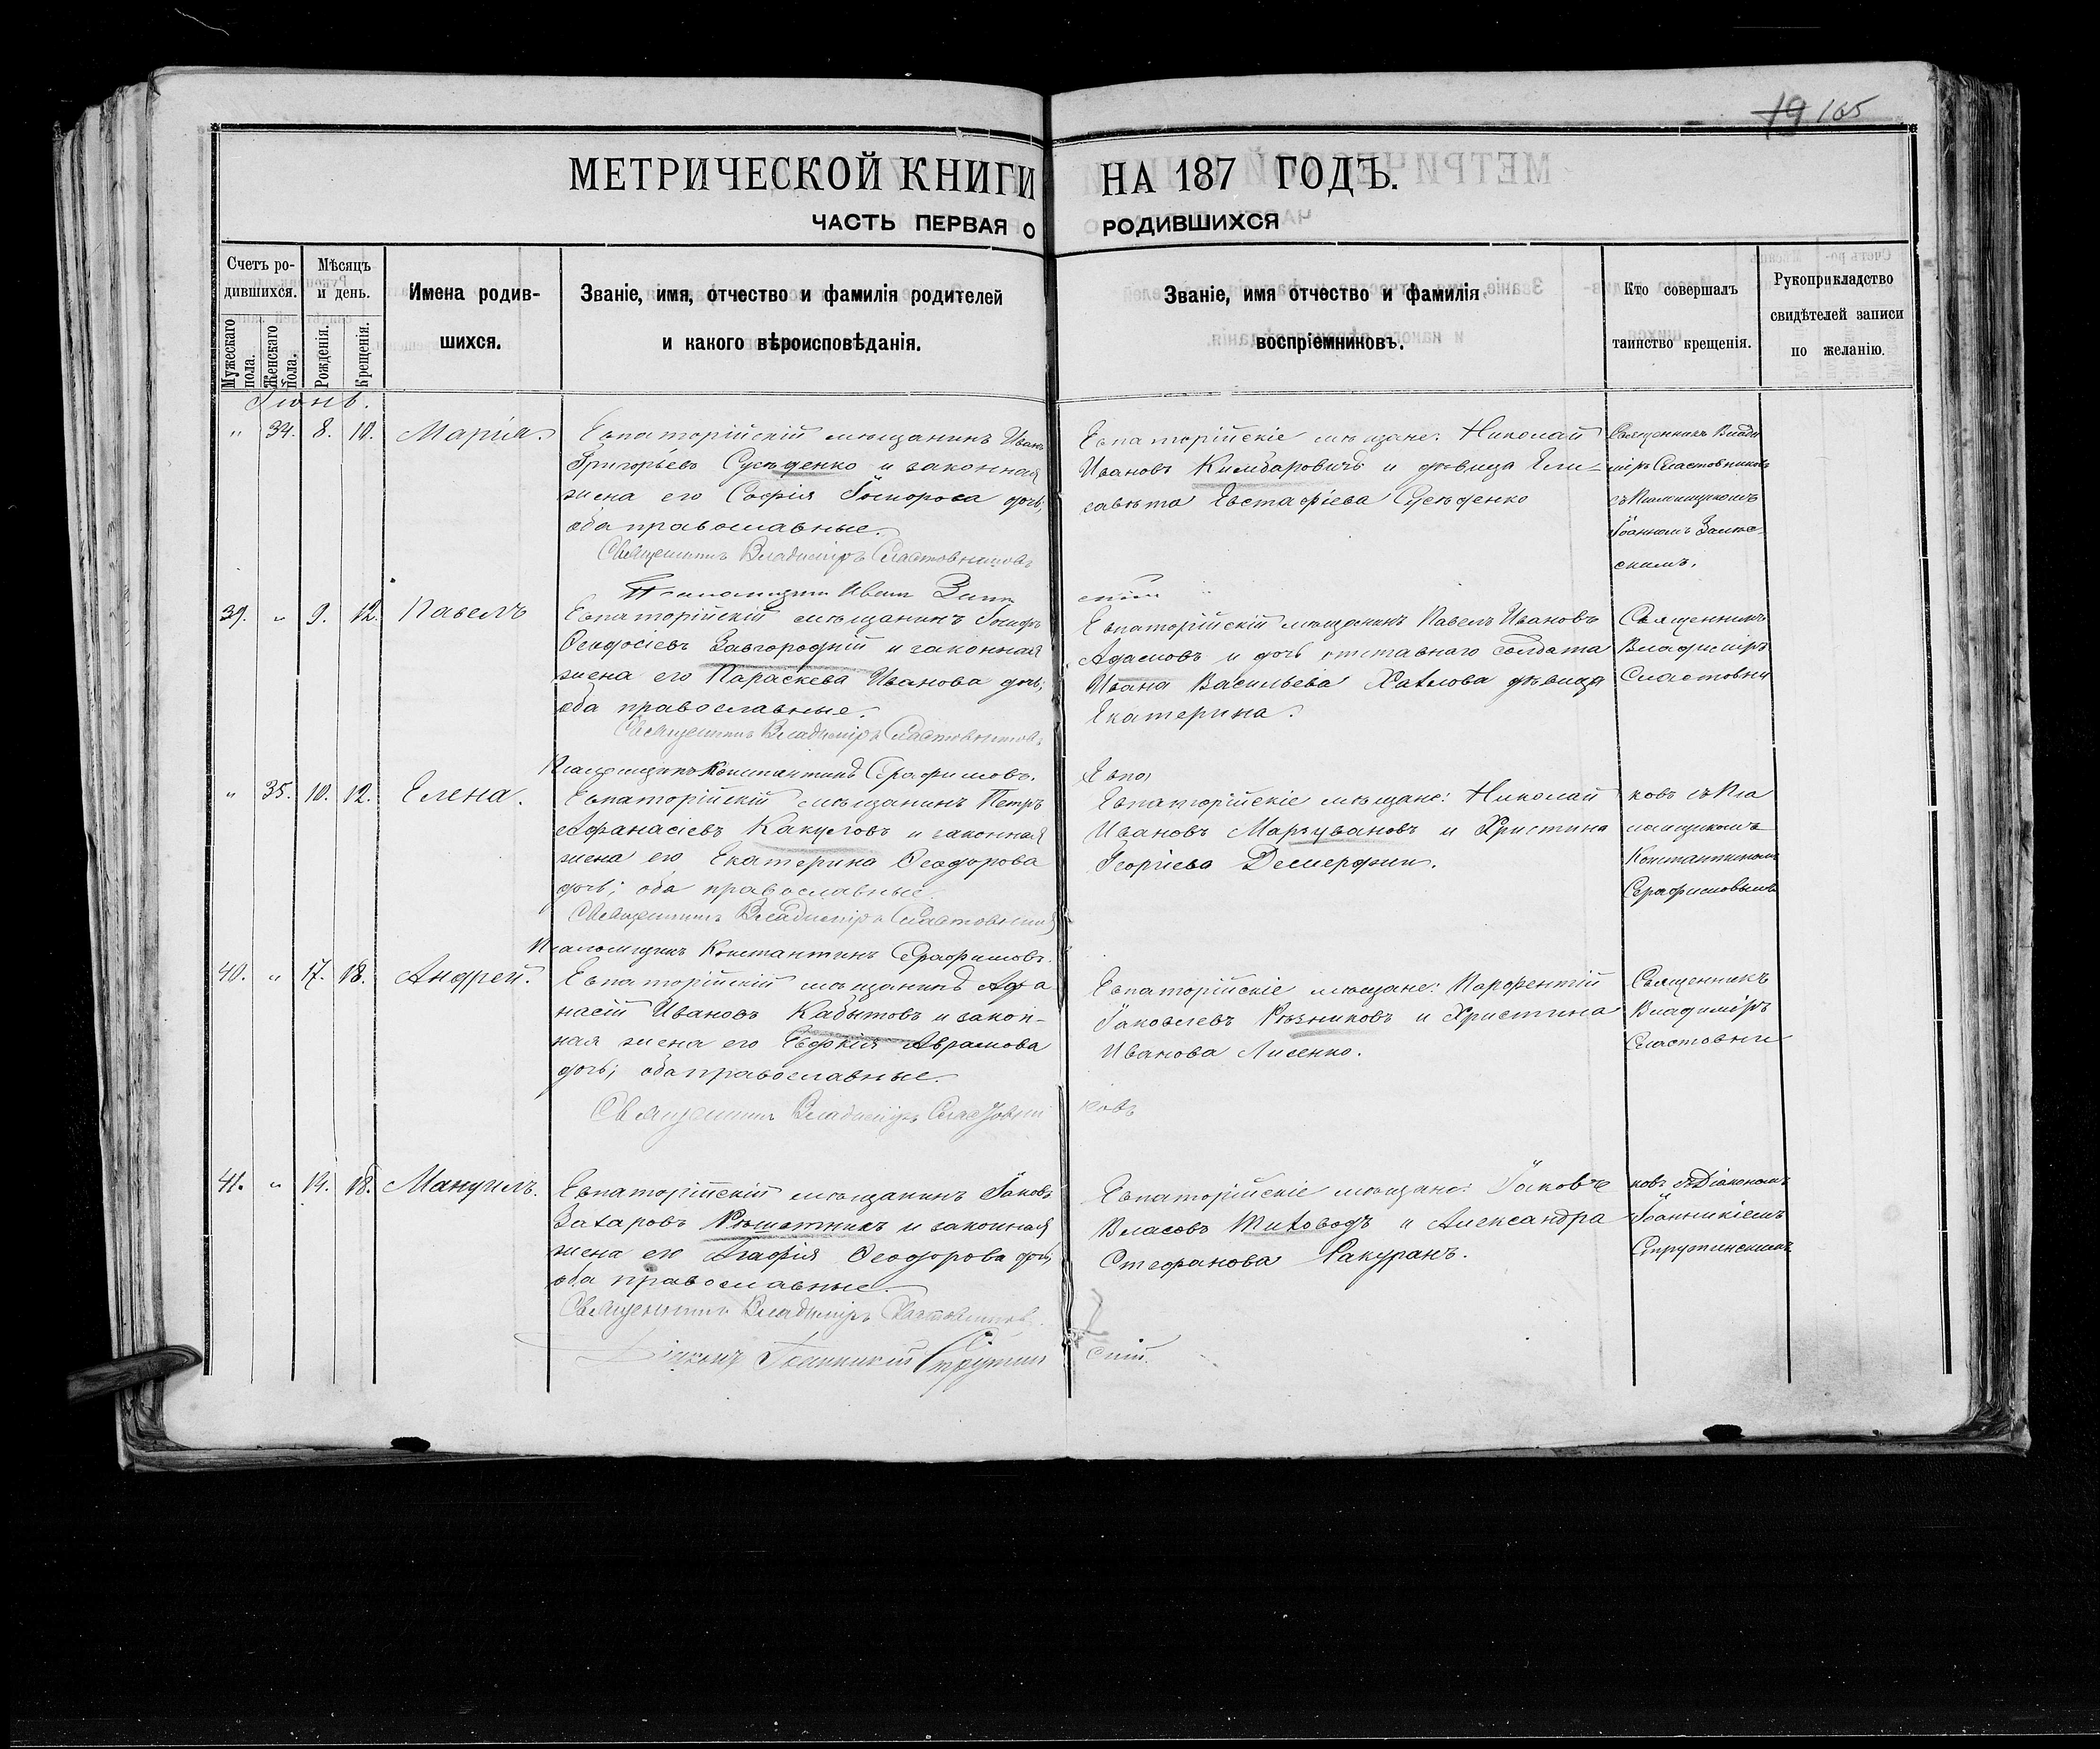 19 165
МЕТРИЧЕСКОЙ КНИГИ НА 187 ГОДЪ.
ЧАСТЬ ПЕРВАЯ О РОДИВШИХСЯ
Счетъ ро-
дившихся.
Мужескаго пола.
Женскаго пола.
Мѣсяцъ
и день.
Рожденія.
Крещенія.
Имена родив-
шихся.
Званіе, имя, отчество и фамилія родителей
и какого вѣроисповѣданія.
Званіе, имя отчество и фамилія
воспріемниковъ.
Кто совершалъ
таинство крещенія.
Рукоприкладство
свидѣтелей записи
по желанію.
Іюнь.
" 34. 8. 10. Марія.
Евпаторійскій мѣщанинъ Иванъ
Григорьевъ Сусѣденко и законная
жена его Софія дочь,
оба православные.
Священникъ Владиміръ Сластовниковъ
Иванъ
Евпаторійскіе мѣщане: Николай
Ивановъ Кимбаровичъ и дѣвица Ели-
савета Евстафіева Сусѣденко
Священникъ Влади
міръ Сластовниковъ
съ Псаломщикомъ
Іоанномъ
скимъ.
39. " 9. 12. Павелъ
Евпаторійскій мѣщанинъ Іосифъ
Ѳеодосіевъ Завгородній и законная
жена его Параскева Иванова дочь,
оба православные.
Священникъ Владиміръ Сластовниковъ
Псаломщикъ Константинъ Серафимовъ.
Евпаторійскій мѣщанинъ Павелъ Ивановъ
Адамовъ и дочь отставнаго солдата
Ивана Васильева дѣвица
Екатерина.
Священникъ
Владиміръ
Сластовни
" 35. 10. 12. Елена.
Евпаторійскій мѣщанинъ Петръ
Афанасіевъ Какуловъ и законная
жена его Екатерина Ѳеодорова
дочь; оба православные.
Священникъ Владиміръ Сластовник
Псаломщикъ Константинъ Серафимовъ.
Евпа
Евпаторійскіе мѣщане: Николай
Ивановъ и Христина
Георгіева Демерджи.
ковъ съ Пса
ломщикомъ
Константиномъ
Серафимовымъ
40. " 17. 18. Андрей.
Евпаторійскій мѣщанинъ Афа
насій Ивановъ Кабытовъ и закон-
ная жена его Евдокія Аврамова
дочь; оба православные.
Священникъ Владиміръ Сластовни
ковъ
Евпаторійскіе мѣщане: Парфентій
Іаковлевъ Рѣзниковъ и Христина
Иванова Лисенко.
Священникъ
Владиміръ
Сластовни
41. " 14. 18. Мануилъ.
Евпаторійскій мѣщанинъ Іаковъ
Захаровъ Рѣшетникъ и законная
жена его Агафія Ѳеодорова дочь,
оба православные.
Священникъ Владиміръ Сластовниковъ.
Діаконъ Іоанникій Струтин
скій.
Евпаторійскіе мѣщане: Іаковъ
Власовъ Тиховодъ и Александра
Стефанова Ракуранъ.
ковъ съ Діакономъ
Іоанникіемъ
Струтинскимъ